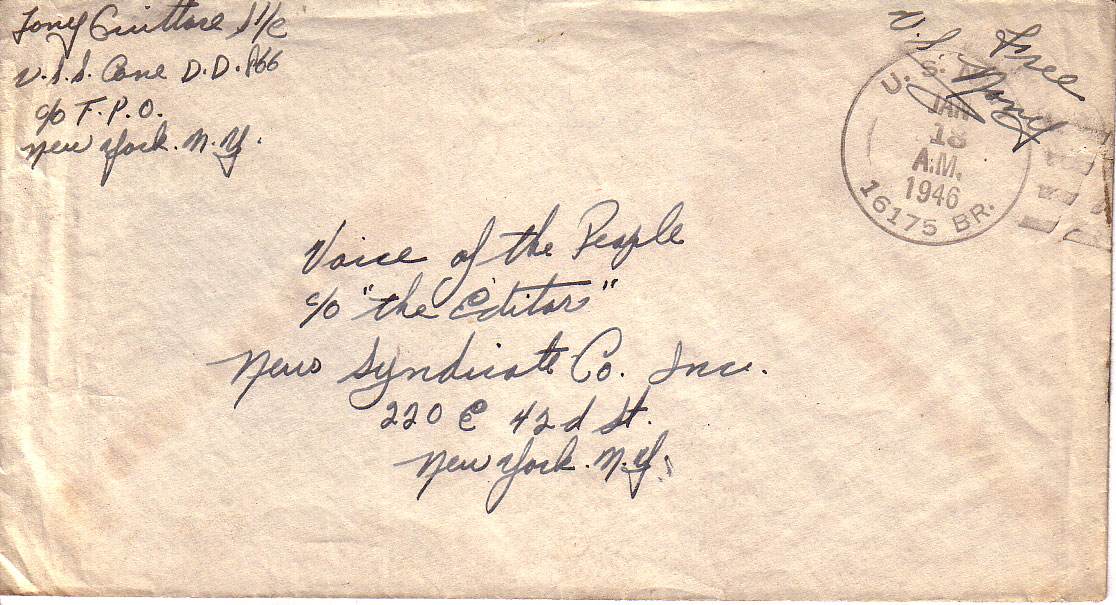 Tony Guittare S1/c
U.S.S. Cone D.D. 866
c/o F.P.O.
New York. N.Y.
Free
U.S. Navy
U.S.
JAN
18
A.M.
1946
16175 BR.
Voice of the People
c/o "the Editor"
News Syndicate Co. Inc.
220 E 42d St.
New York. N.Y.